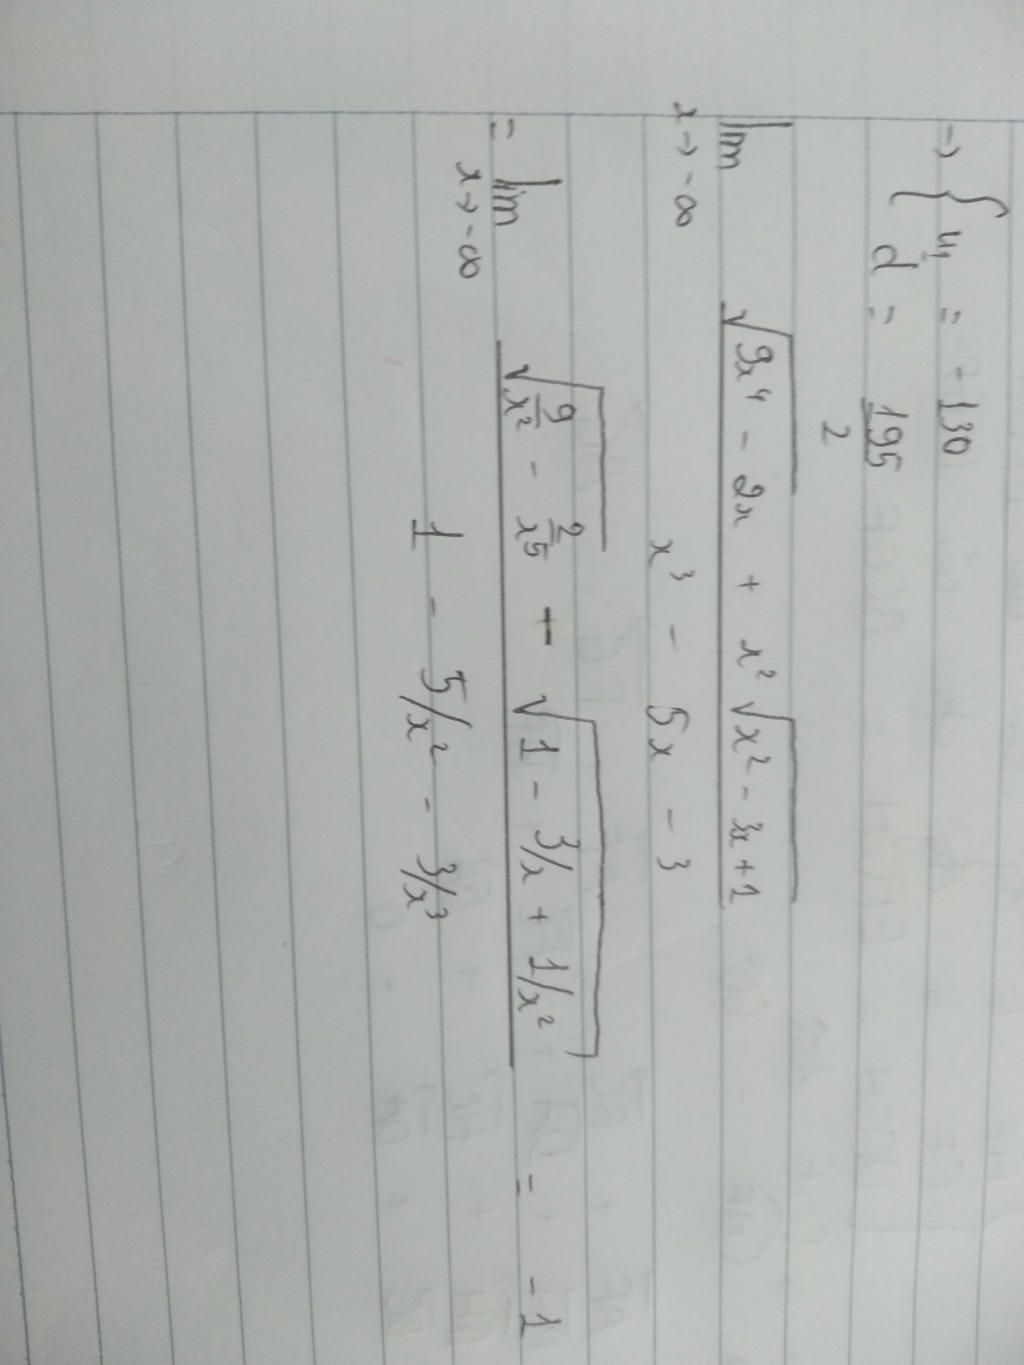 → { u₁ = -130
d = 195/2
lim x→-∞ (√(9x⁴ - 2x) + x²√(x² - 3x + 1)) / (x³ - 5x - 3)
= lim x→-∞ (√(9/x² - 2/x⁵) + √(1 - 3/x + 1/x²)) / (1 - 5/x² - 3/x³) = -1